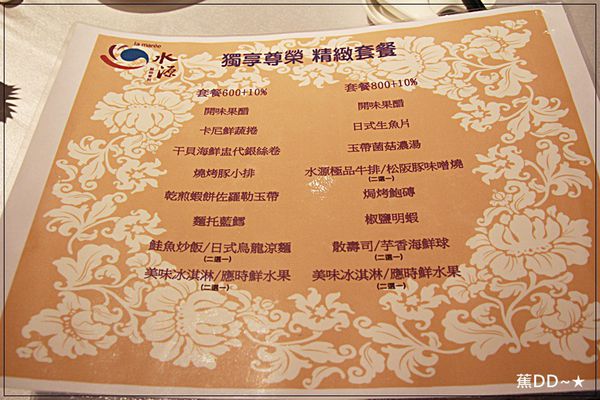 la marée
水源
獨享尊榮 精緻套餐
套餐600+10%
開味果醋
卡尼鮮蔬捲
干貝海鮮盅代銀絲卷
燒烤豚小排
乾煎蝦餅佐羅勒玉帶
麵托藍鱈
鮭魚炒飯/日式烏龍涼麵
(二選一)
美味冰淇淋/應時鮮水果
(二選一)
套餐800+10%
開味果醋
日式生魚片
玉帶菌菇濃湯
水源極品牛排/松阪豚味噌燒
(二選一)
焗烤鮑磚
椒鹽明蝦
散壽司/芋香海鮮球
(二選一)
美味冰淇淋/應時鮮水果
(二選一)
蕉DD~★